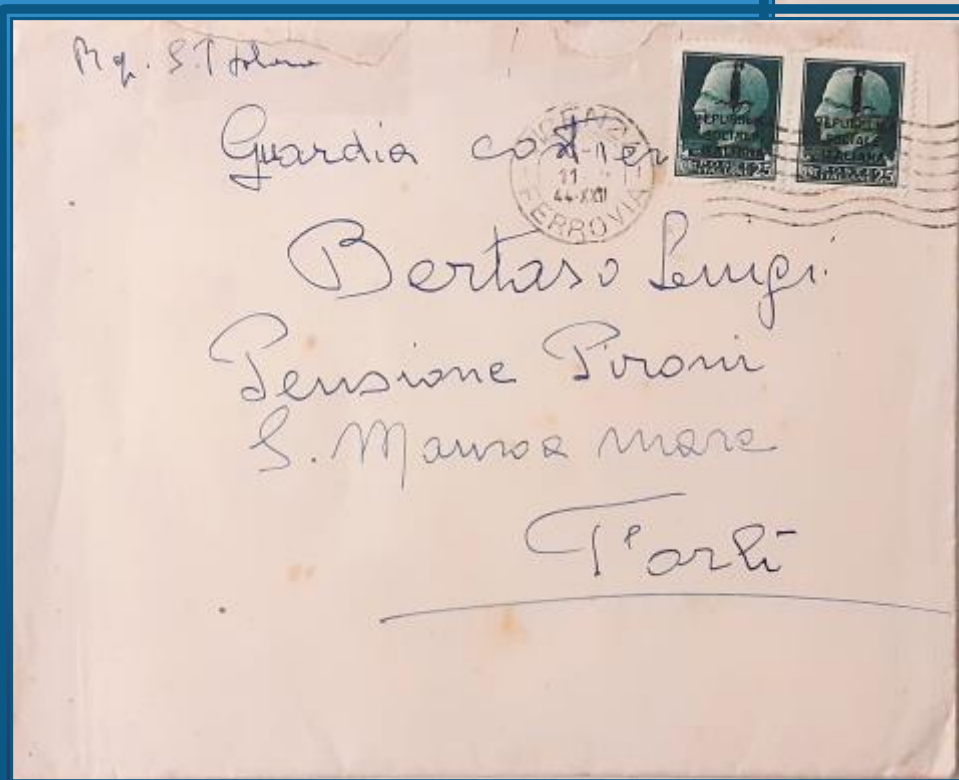 Guardia costiera
Bertaso Luigi
Pensione Pironi
S. Mauro a mare
Forlì
FERROVIA
11
44-XXII
REPUBBLICA
SOCIALE
ITALIANA
REPUBBLICA
SOCIALE
ITALIANA